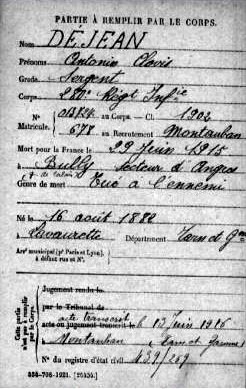 PARTIE À REMPLIR PAR LE CORPS.
Nom DÉJEAN
Prénoms Antonin Clovis
Grade Sergent
Corps Régt Infie
N° Matricule. au Corps. — Cl. 1902
678 au Recrutement Montauban
Mort pour la France le 29 Juin 1915
à Bully Secteur d'Angres
Pas de Calais
Genre de mort Tué à l'ennemi
Né le 16 août 1882
à Lavaurette Département Tarn et Gne
Arrt municipal (pr Paris et Lyon),
à défaut rue et N°.
Cette partie n'est pas à remplir par le Corps.
Jugement rendu le
par le Tribunal de
acte transcrit
acte ou jugement transcrit le 13 Juin 1916
Montauban (Tarn et Garonne)
N° du registre d'état civil 439/269